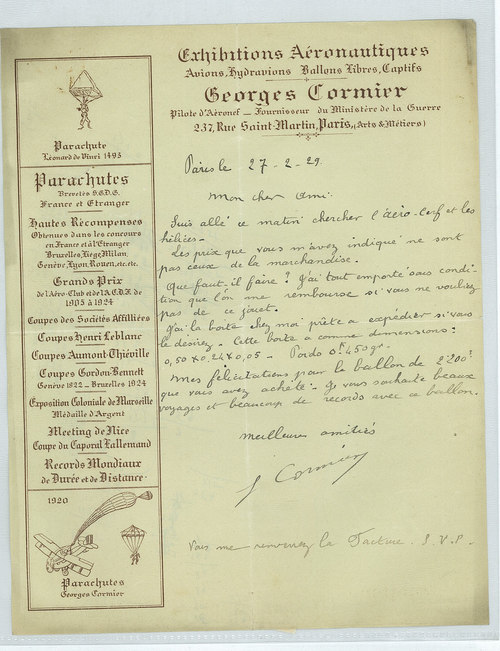 Exhibitions Aéronautiques
Avions, Hydravions Ballons Libres, Captifs
Georges Cormier
Pilote d'Aéronef — Fournisseur du Ministère de la Guerre
237, Rue Saint-Martin, Paris, (Arts & Métiers)
Parachute
Léonard de Vinci 1495
Parachutes
Brevetés S.G.D.G.
France et Etranger
Hautes Récompenses
Obtenues dans les concours
en France et à l'Etranger
Bruxelles, Liège, Milan,
Genève, Lyon, Rouen, etc. etc.
Grands Prix
de l'Aéro-Club et de l'A.C.D.F. de
1903 à 1924
Coupes des Sociétés Affiliées
Coupes Henri Leblanc
Coupes Aumont-Thiéville
Coupes Gordon-Bennett
Genève 1922 - Bruxelles 1924
Exposition Coloniale de Marseille
Médaille d'Argent
Meeting de Nice
Coupe du Caporal Lallemand
Records Mondiaux
de Durée et de Distance
1920
Parachutes
Georges Cormier
Paris le 27-2-29.
Mon cher Ami
Suis allé ce matin chercher l'aéro-cerf et les
hélices -
Les prix que vous m'avez indiqué ne sont
pas ceux de la marchandise.
Que faut-il faire? J'ai tout emporté sous condi-
tion que l'on me rembourse si vous ne vouliez
pas de ce jouet.
J'ai la boite chez moi prête a expédier si vous
le desirez. Cette boite a comme dimensions:
0,50 x 0.24 x 0,05 - Poids 0K 450 gr.
Mes félicitations pour le ballon de 2200
que vous avez acheté. Je vous souhaite beaux
voyages et beaucoup de records avec ce ballon.
Meilleures amitiés
G Cormier
Vous me renverrez la facture. S.V.P.